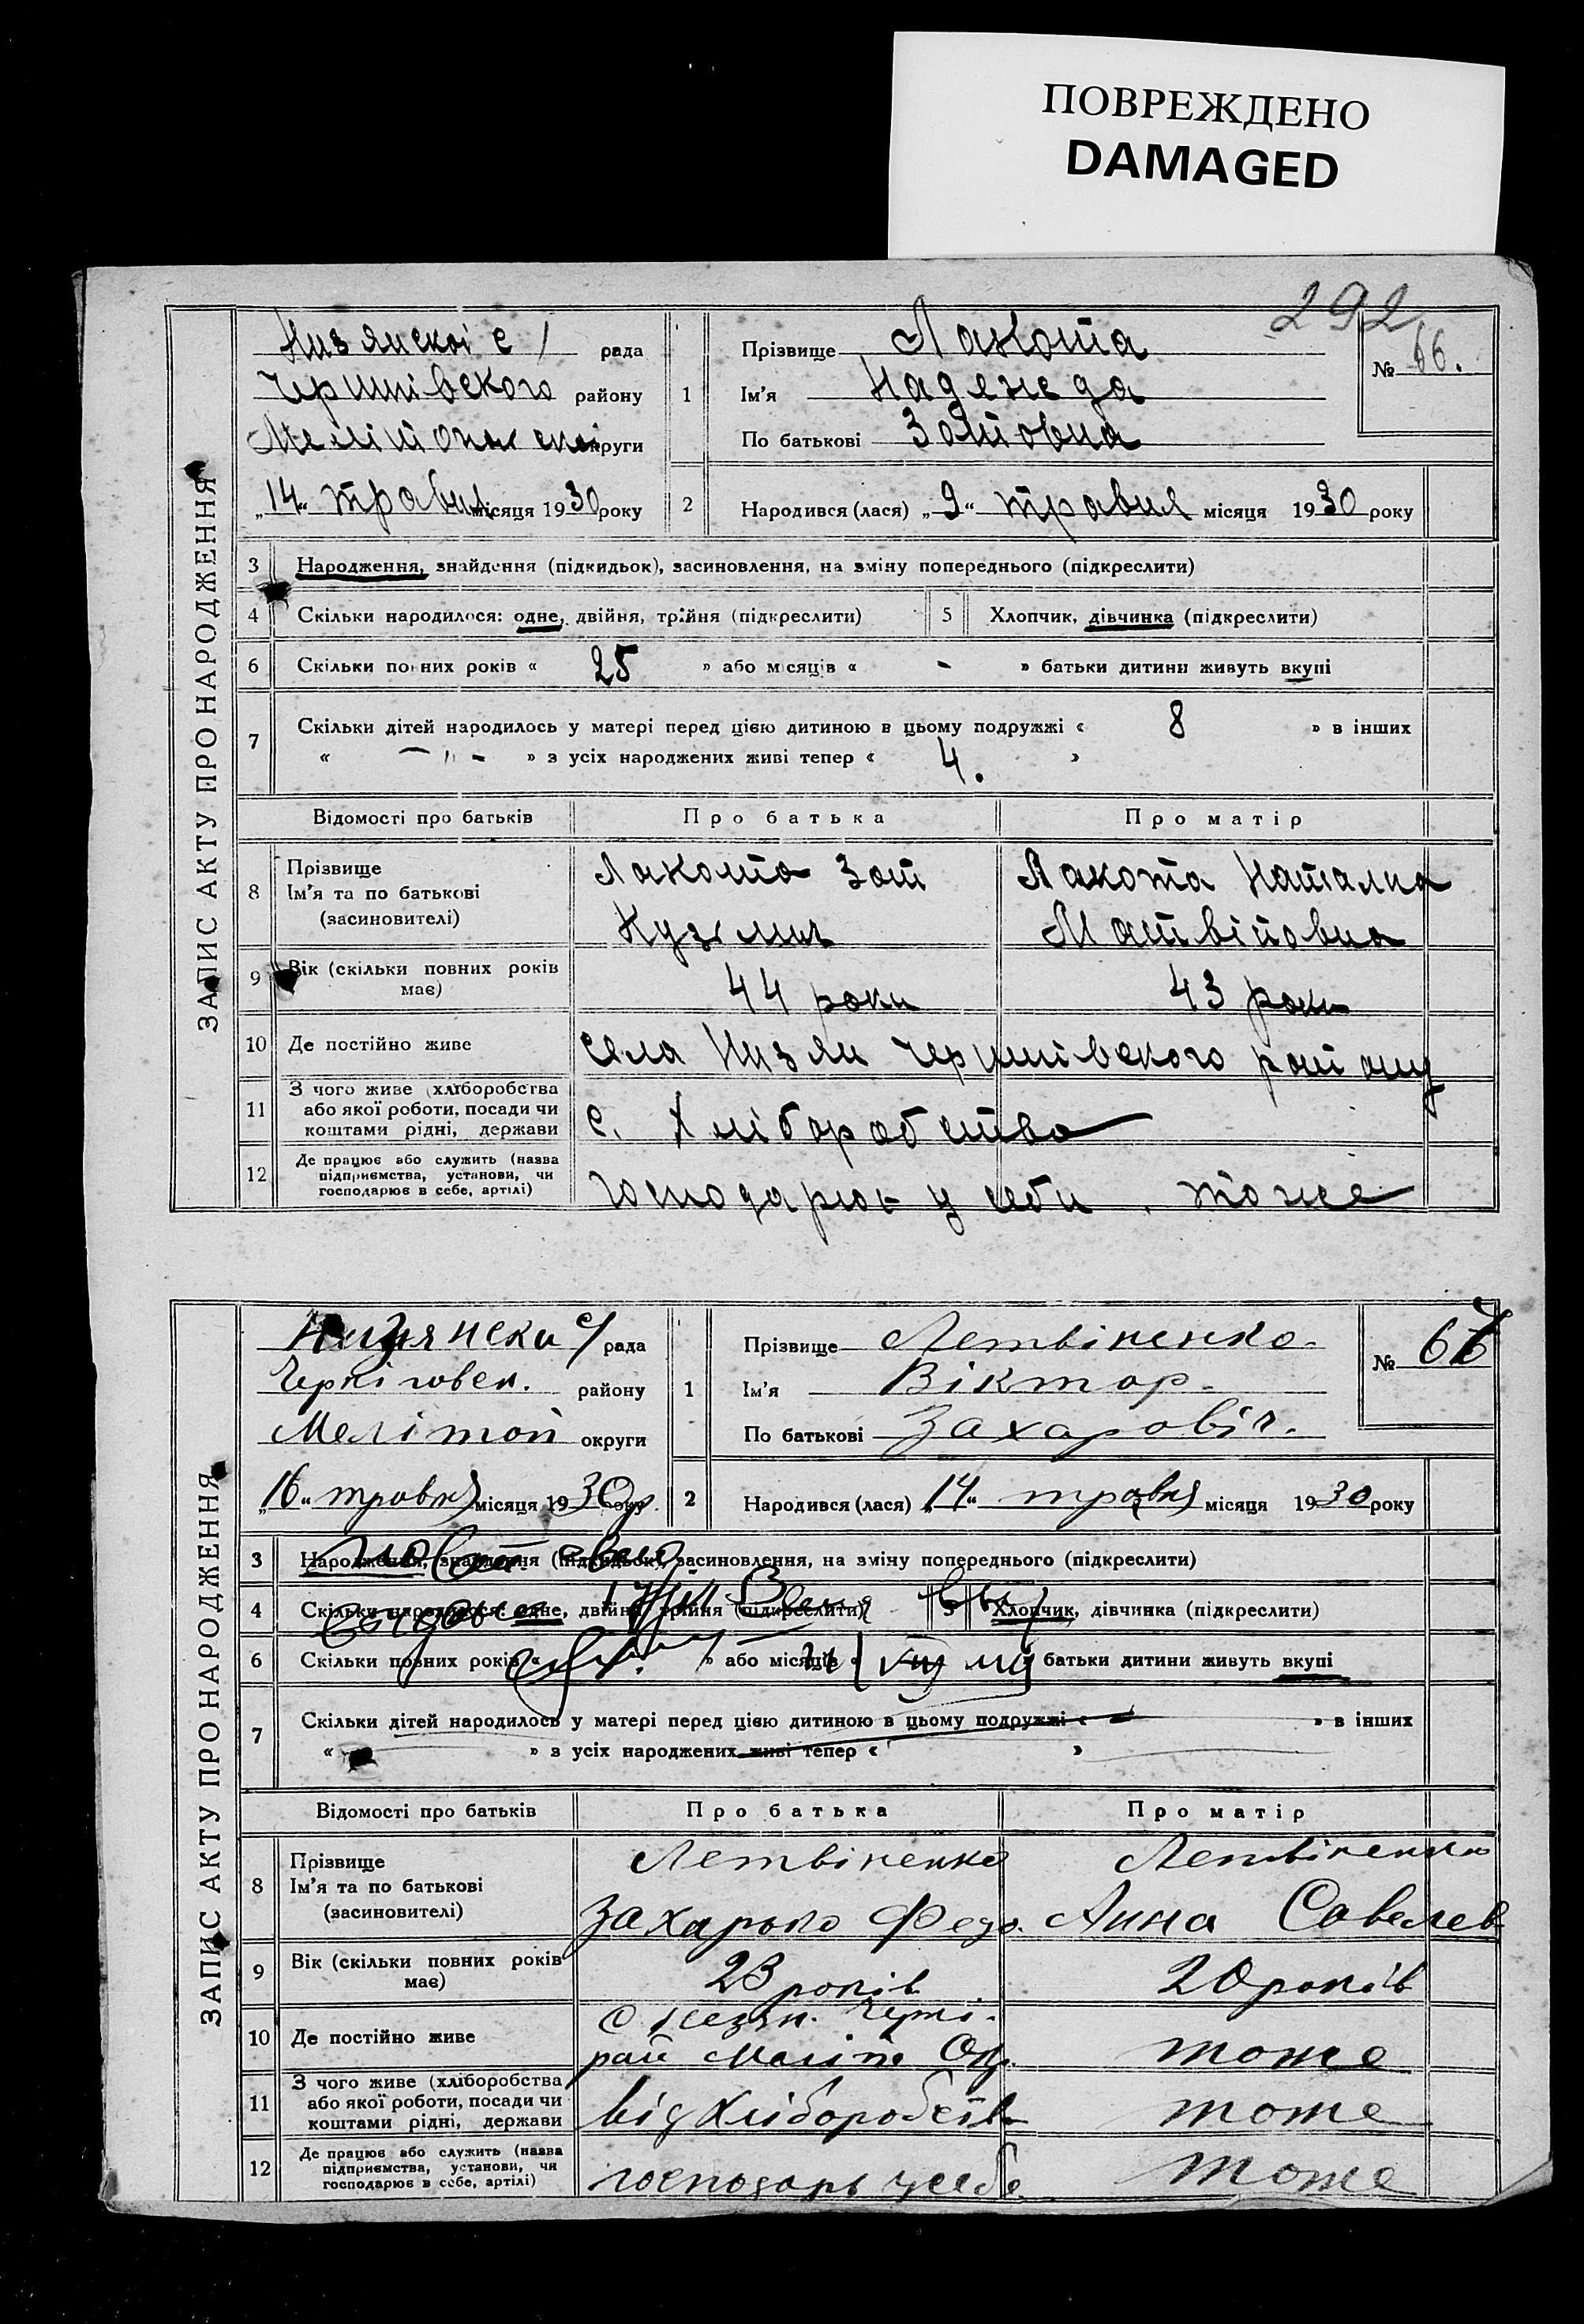 ПОВРЕЖДЕНО
DAMAGED
292
ЗАПИС АКТУ ПРО НАРОДЖЕННЯ
Низянскоі с/ рада
района району
округи
„14“ травня місяця 1930 року
1 Прізвище Лакота
Ім'я Надежда
По батькові Зотовна
№ 66.
2 Народився (лася) „9“ травня місяця 1930 року
3 Народження, знайдення (підкидьок), засиновлення, на зміну попереднього (підкреслити)
4 Скільки народилося: одне, двійня, трійня (підкреслити) 5 Хлопчик, дівчинка (підкреслити)
6 Скільки повних років « 25 » або місяців « - » батьки дитини живуть вкупі
7 Скільки дітей народилось у матері перед цією дитиною в цьому подружжі « 8 » в інших
« — " - » з усіх народжених живі тепер « 4. »
Відомості про батьків Про батька Про матір
8 Прізвище Ім'я та по батькові (засиновителі) Лакота Зот Кузьмич Лакота Наталка Матвіиовна
9 Вік (скільки повних років має) 44 роки 43 роки
10 Де постійно живе села Низян района
11 З чого живе (хліборобства або якої роботи, посади чи коштами рідні, держави с. Хліборобства
12 Де працює або служить (назва підприємства, установи, чи господарює в себе, артілі) господарює у себи. тоже
ЗАПИС АКТУ ПРО НАРОДЖЕННЯ
Низянски с/ рада
Черніговск. району
Мелітоп округи
„16“ травня місяця 1930 року
1 Прізвище Летвіненко.
Ім'я Віктор.
По батькові Захаровіч.
№ 67
2 Народився (лася) „14“ травня місяця 1930 року
3 Народження, знайдення (підкидьок), засиновлення, на зміну попереднього (підкреслити)
4 Скільки народилося: одне, двійня, трійня (підкреслити) 5 Хлопчик, дівчинка (підкреслити)
6 Скільки повних років « » або місяців « » батьки дитини живуть вкупі
7 Скільки дітей народилось у матері перед цією дитиною в цьому подружжі « » в інших
« » з усіх народжених живі тепер « »
Відомості про батьків Про батька Про матір
8 Прізвище Ім'я та по батькові (засиновителі) Летвіненко Захарько Федо. Летвіненко Анна Савелев
9 Вік (скільки повних років має) 23 років 20 років
10 Де постійно живе с Незян. Черні. рай Меліт Окр. тоже
11 З чого живе (хліборобства або якої роботи, посади чи коштами рідні, держави від Хліборобств тоже
12 Де працює або служить (назва підприємства, установи, чи господарює в себе, артілі) господарь усебе. тоже